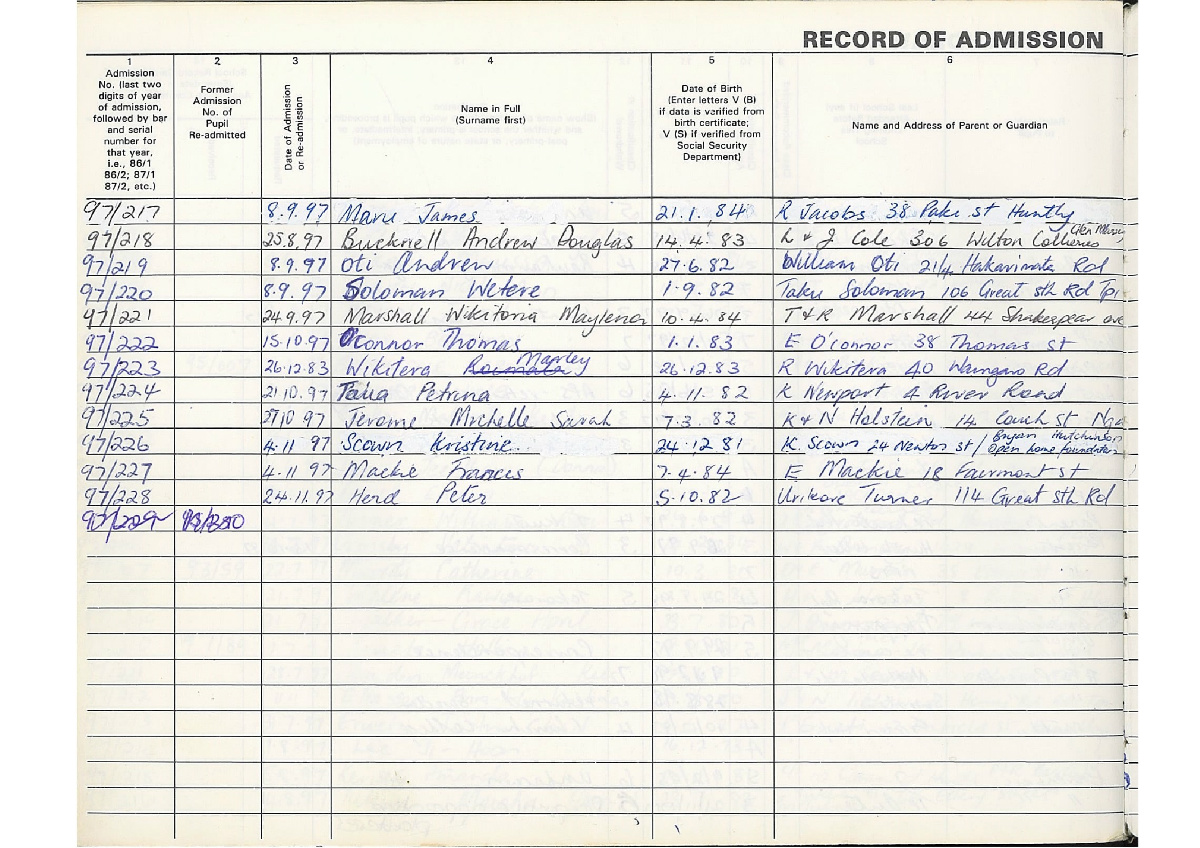 RECORD OF ADMISSION
1 2 3 4 5 6
Admission No. (last two digits of year of admission, followed by bar and serial number for that year, i.e., 86/1 86/2; 87/1 87/2, etc.)
Former Admission No. of Pupil Re-admitted
Date of Admission or Re-admission
Name in Full (Surname first)
Date of Birth (Enter letters V (B) if data is verified from birth certificate; V (S) if verified from Social Security Department)
Name and Address of Parent or Guardian
97/217 8.9.97 Maru James 21.1.84 R Jacobs 38 Paki st Huntly
97/218 25.8.97 Bucknell Andrew Douglas 14.4.83 L & J Cole 306 Wilton Collieries Glen
97/219 8.9.97 Oti Andrew 27.6.82 William Oti 21/4 Hakarimata Rd
97/220 8.9.97 Soloman Wetere 1.9.82 Taku Soloman 106 Great sth Rd Tpi
97/221 24.9.97 Marshall Wikitoria Maylena 10.4.84 T & R Marshall 44 Shakespear ave
97/222 15.10.97 O'connor Thomas 1.1.83 E O'connor 38 Thomas st
97/223 26.12.83 Wikitera Manley 26.12.83 R Wikitera 40 Waingaro Rd
97/224 21.10.97 Taua Petrina 4.11.82 K Newport 4 River Road
97/225 27.10.97 Jerome Michelle Sarah 7.3.82 K & N Holstein 14 Couch st
97/226 4.11.97 Scown Kristine 24.12.81 K. Scown 24 Newton st / Bryan Hutchinson Open home foundation
97/227 4.11.97 Mackie Francis 7.4.84 E Mackie 18 Fairmont st
97/228 24.11.97 Herd Peter 5.10.82 Urikore Turner 114 Great Sth Rd
97/229